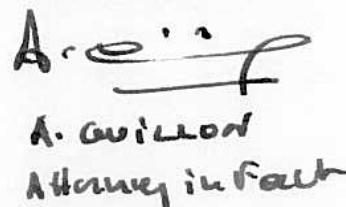 A. GUILLON
Attorney in Fact